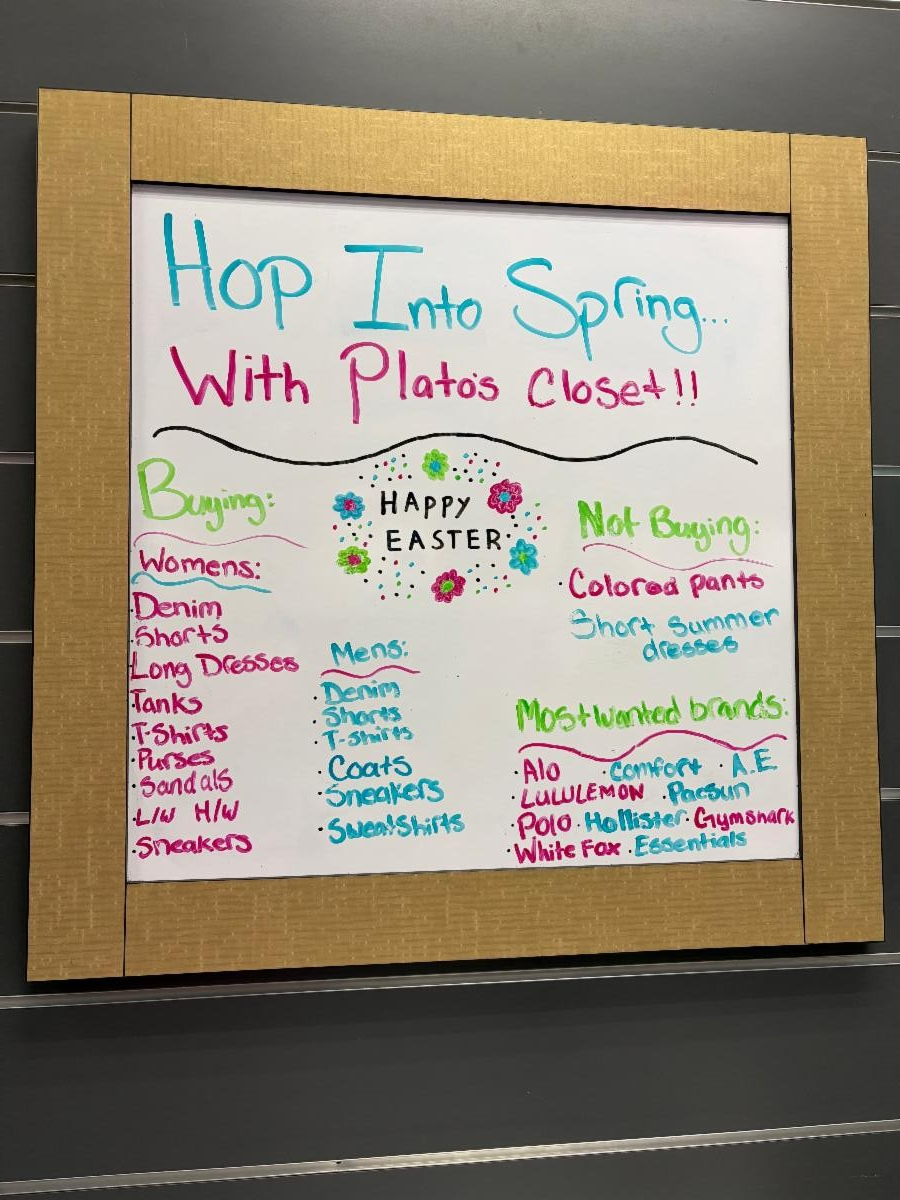 Hop Into Spring...
With Plato's Closet!!
HAPPY
EASTER
Buying:
Womens:
Denim
Shorts
Long Dresses
Tanks
T-Shirts
Purses
Sandals
L/W H/W
Sneakers
Mens:
Denim
Shorts
T-shirts
Coats
Sneakers
Sweatshirts
Not Buying:
Colored pants
Short summer
dresses
Most wanted brands:
Alo · comfort · A.E.
LULULEMON · Pacsun
Polo · Hollister · Gymshark
White Fox · Essentials